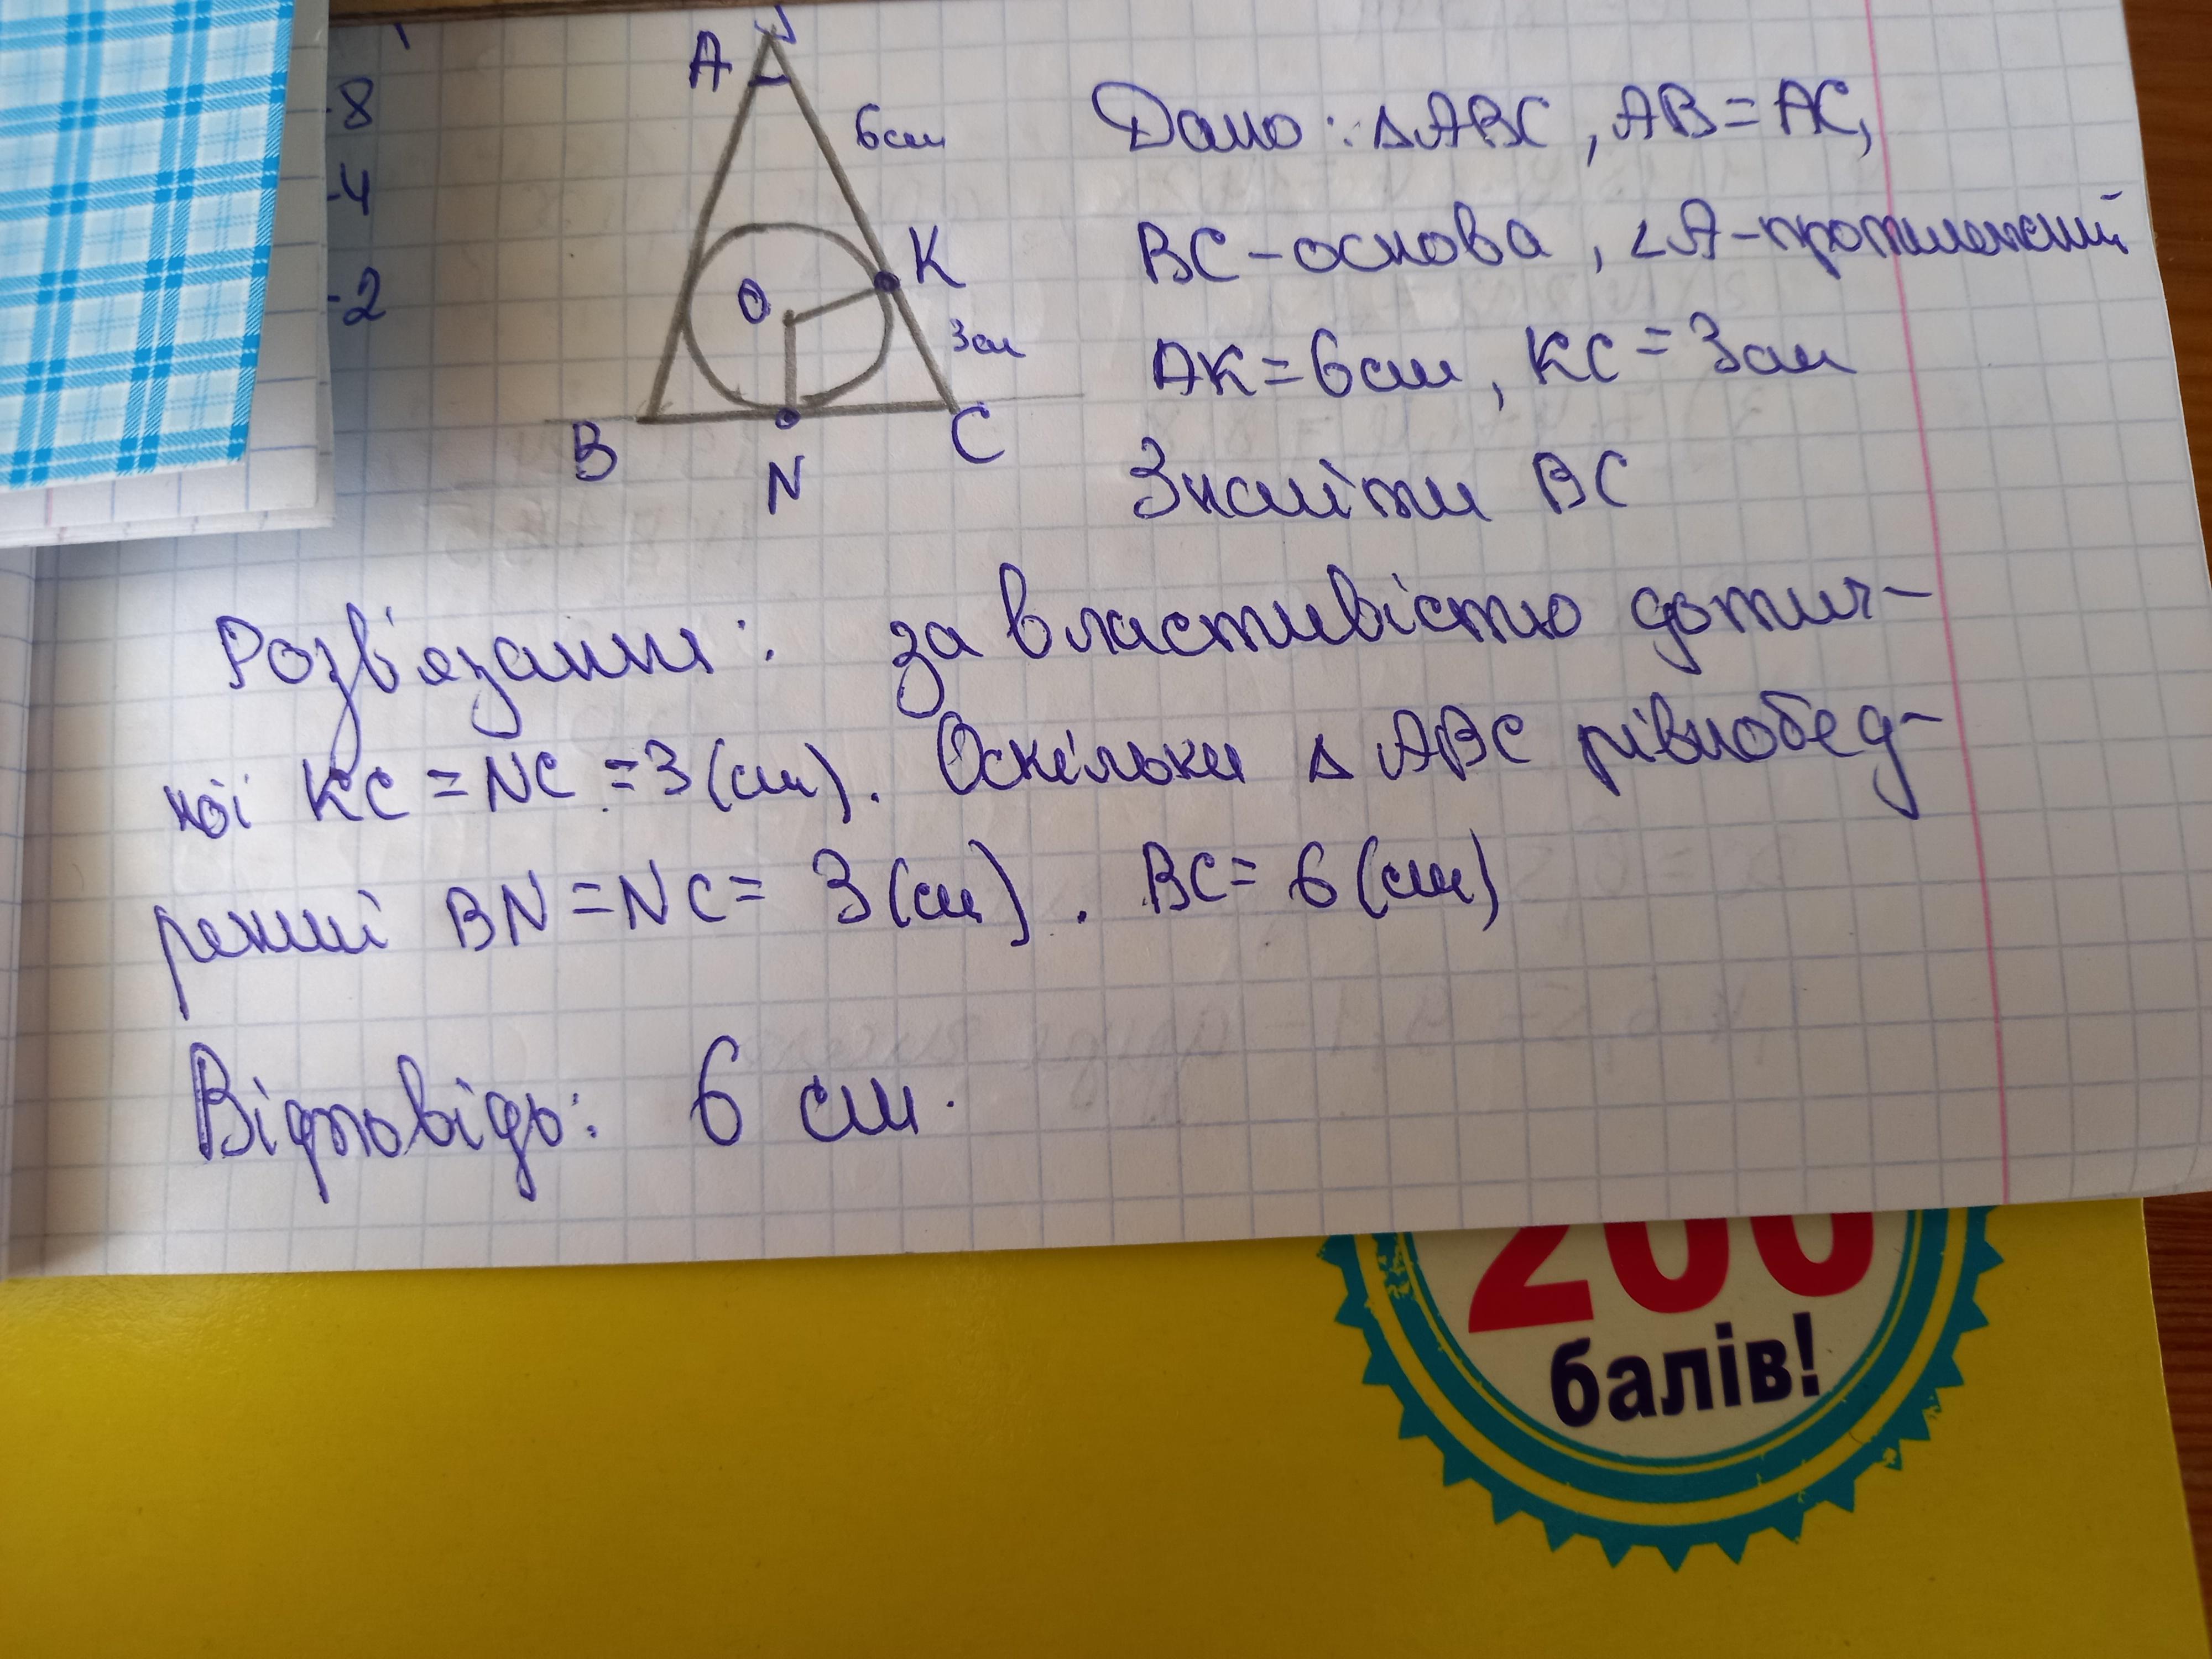 -8
-4
-2
A
6см
K
O
3см
B
N
C
Дано: △ABC, AB=AC,
BC-основа, ∠A-протилежний
AK=6см, KC=3см
Знайти BC
Розв'язання: за властивістю дотич-
ної KC=NC=3(см). Оскільки △ABC рівнобед-
рений BN=NC=3(см). BC=6(см)
Відповідь: 6 см.
200
балів!